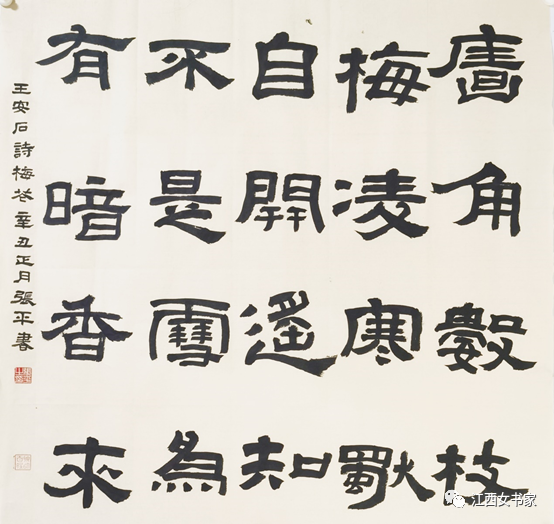 廧角數枝
梅凌寒獨
自開遙知
不是雪為
有暗香來
王安石詩梅花辛丑正月張平書
江西女书家